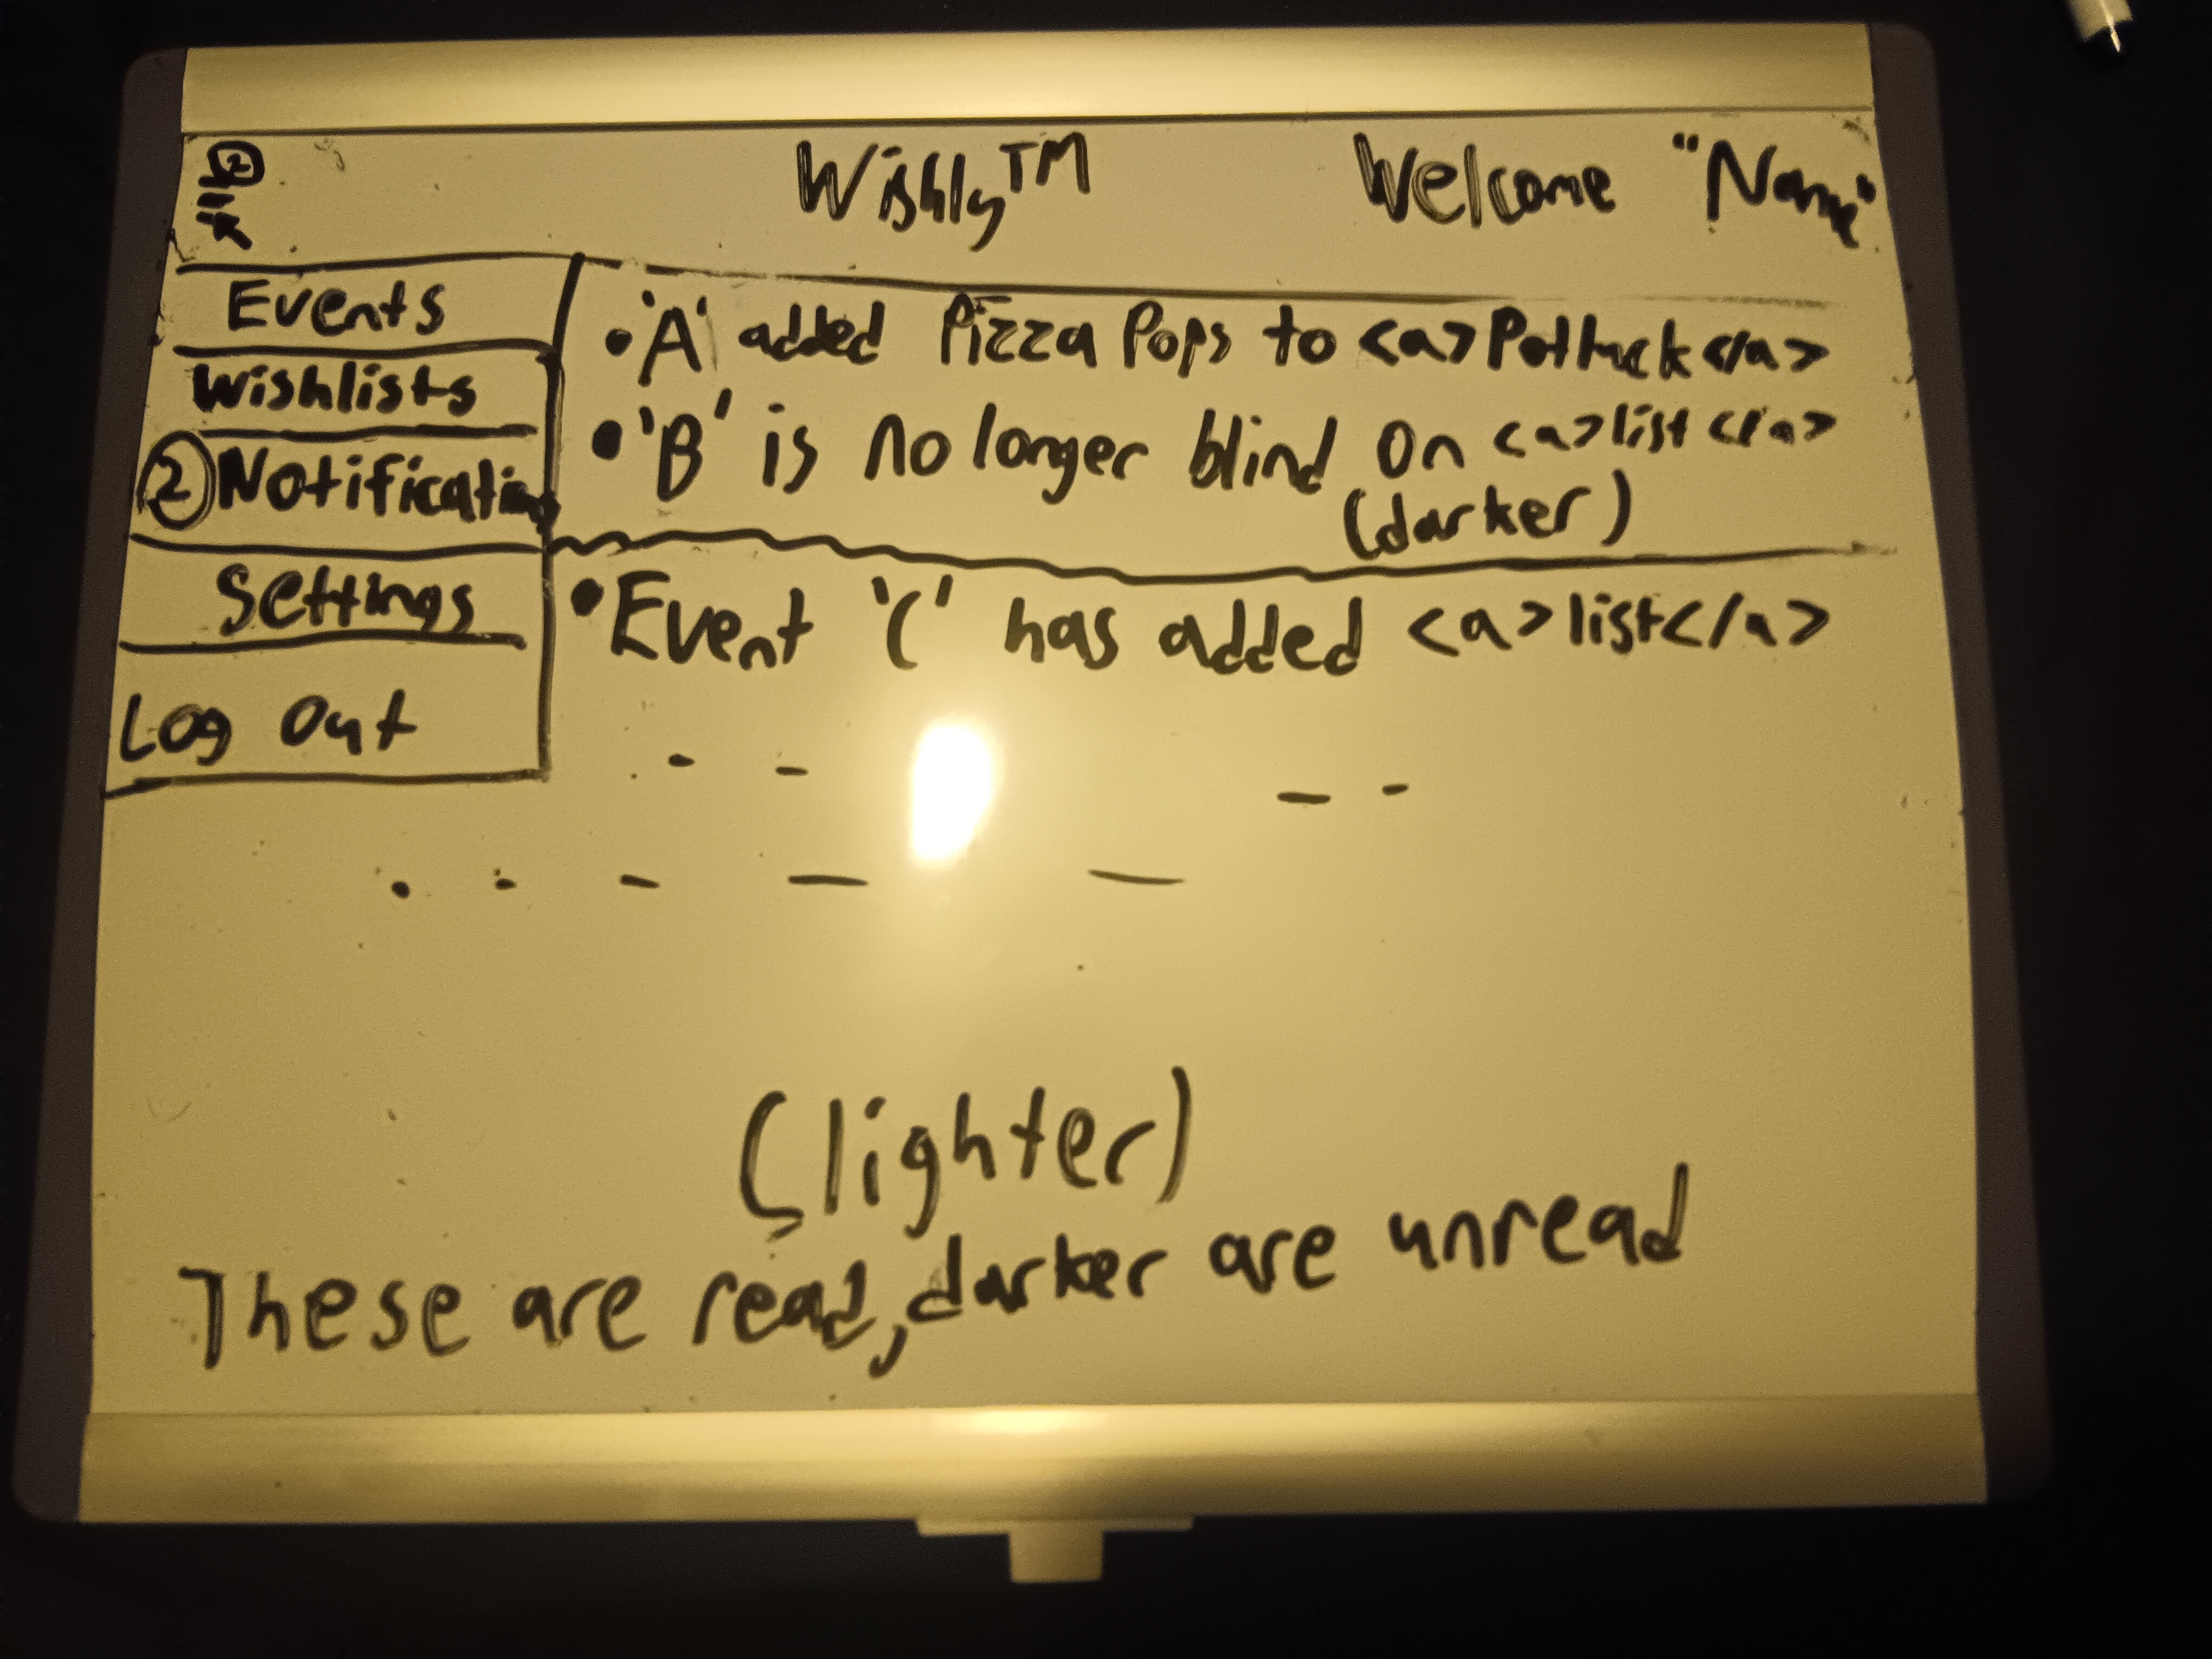 ② Wishly™ Welcome "Name"
Events
Wishlists
② Notification
Settings
Log Out
• 'A' added Pizza Pops to <a>Potluck</a>
• 'B' is no longer blind on <a>list</a>
(darker)
• Event 'C' has added <a>list</a>
(lighter)
These are read, darker are unread